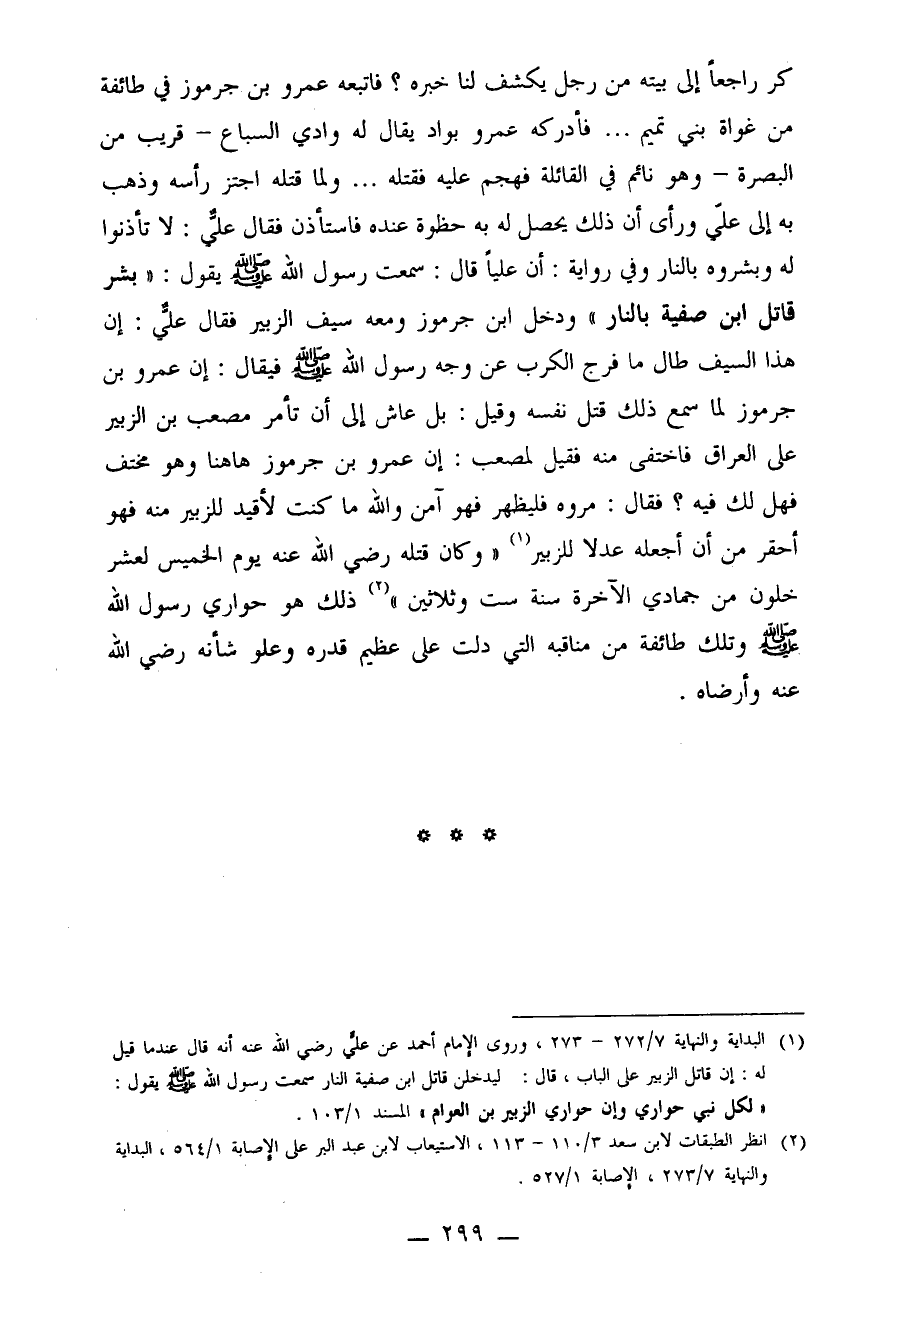 كر راجعاً إلى بيته من رجل يكشف لنا خبره ؟ فاتبعه عمرو بن جرموز في طائفة
من غواة بني تميم ... فأدركه عمرو بواد يقال له وادي السباع – قريب من
البصرة – وهو نائم في القائلة فهجم عليه فقتله ... ولما قتله اجتز رأسه وذهب
به إلى عليّ ورأى أن ذلك يحصل له به حظوة عنده فاستأذن فقال عليٌّ : لا تأذنوا
له وبشروه بالنار وفي رواية : أن علياً قال : سمعت رسول الله ﷺ يقول : « بشر
قاتل ابن صفية بالنار » ودخل ابن جرموز ومعه سيف الزبير فقال عليٌّ : إن
هذا السيف طال ما فرج الكرب عن وجه رسول الله ﷺ فيقال : إن عمرو بن
جرموز لما سمع ذلك قتل نفسه وقيل : بل عاش إلى أن تأمر مصعب بن الزبير
على العراق فاختفى منه فقيل لمصعب : إن عمرو بن جرموز هاهنا وهو مختف
فهل لك فيه ؟ فقال : مروه فليظهر فهو آمن والله ما كنت لأقيد للزبير منه فهو
أحقر من أن أجعله عدلا للزبير(١) « وكان قتله رضي الله عنه يوم الخميس لعشر
خلون من جمادي الآخرة سنة ست وثلاثين »(٢) ذلك هو حواري رسول الله
ﷺ وتلك طائفة من مناقبه التي دلت على عظيم قدره وعلو شأنه رضي الله
عنه وأرضاه .
* * *
(١) البداية والنهاية ٢٧٢/٧ – ٢٧٣ ، وروى الإمام أحمد عن عليٍّ رضي الله عنه أنه قال عندما قيل
له : إن قاتل الزبير على الباب ، قال : ليدخلن قاتل ابن صفية النار سمعت رسول الله ﷺ يقول :
« لكل نبي حواري وإن حواري الزبير بن العوام » المسند ١٠٣/١ .
(٢) انظر الطبقات لابن سعد ١١٠/٣ – ١١٣ ، الاستيعاب لابن عبد البر على الإصابة ٥٦٤/١ ، البداية
والنهاية ٢٧٣/٧ ، الإصابة ٥٢٧/١ .
— ٢٩٩ —